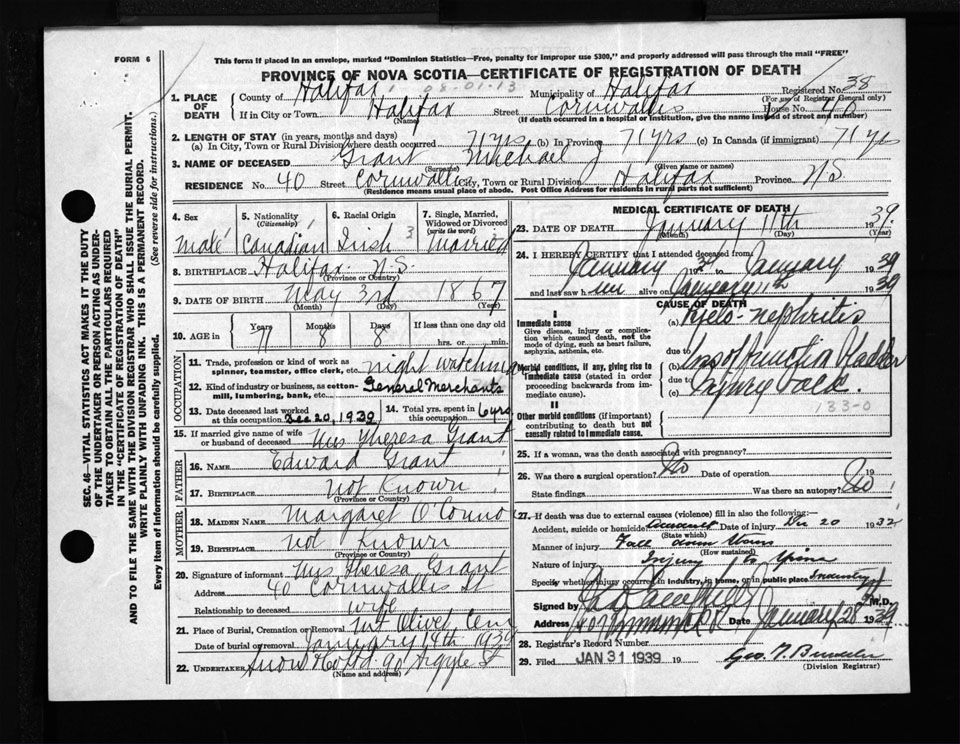 FORM 6
This form if placed in an envelope, marked "Dominion Statistics—Free, penalty for improper use $300," and properly addressed will pass through the mail "FREE"
PROVINCE OF NOVA SCOTIA—CERTIFICATE OF REGISTRATION OF DEATH
SEC. 46—VITAL STATISTICS ACT MAKES IT THE DUTY
OF THE UNDERTAKER OR PERSON ACTING AS UNDER-
TAKER TO OBTAIN ALL THE PARTICULARS REQUIRED
IN THE "CERTIFICATE OF REGISTRATION OF DEATH"
AND TO FILE THE SAME WITH THE DIVISION REGISTRAR WHO SHALL ISSUE THE BURIAL PERMIT.
WRITE PLAINLY WITH UNFADING INK. THIS IS A PERMANENT RECORD.
Every item of information should be carefully supplied. (See reverse side for instructions.)
1. PLACE OF DEATH
County of Halifax 08-01-13 Municipality of Halifax Registered No. 38
(For use of Registrar General only)
If in City or Town Halifax Street Cornwallis House No. 40
(Name) (If death occurred in a hospital or institution, give the name instead of street and number)
2. LENGTH OF STAY (in years, months and days)
(a) In City, Town or Rural Division where death occurred 71 yrs (b) In Province 71 yrs (c) In Canada (if immigrant) 71 yr
3. NAME OF DECEASED Grant Michael J
(Surname) (Given name or names)
RESIDENCE No. 40 Street Cornwallis City, Town or Rural Division Halifax Province N.S.
(Residence means usual place of abode. Post Office Address for residents in rural parts not sufficient)
4. Sex Male
5. Nationality (Citizenship) Canadian
6. Racial Origin Irish 3
7. Single, Married, Widowed or Divorced (write the word) Married
8. BIRTHPLACE Halifax N.S.
(Province or Country)
9. DATE OF BIRTH May 3rd 1867
(Month) (Day) (Year)
10. AGE in Years 71 Months 8 Days 8 If less than one day old
hrs. or min.
OCCUPATION
11. Trade, profession or kind of work as spinner, teamster, office clerk, etc. night watchman
12. Kind of industry or business, as cotton-mill, lumbering, bank, etc. General Merchants
13. Date deceased last worked at this occupation Dec 20, 1939
14. Total yrs. spent in this occupation 6 yrs
15. If married give name of wife or husband of deceased Mrs Theresa Grant
FATHER
16. Name Edward Grant
17. Birthplace Not Known
(Province or Country)
MOTHER
18. Maiden Name Margaret O'Connor
19. Birthplace Not Known
(Province or Country)
20. Signature of informant Mrs Theresa Grant
Address 40 Cornwallis St
Relationship to deceased wife
21. Place of Burial, Cremation or Removal Mt Olivet Cem
Date of burial or removal January 14th 1939
22. Undertaker Snow & Co Ltd 90 Argyle St
(Name and address)
MEDICAL CERTIFICATE OF DEATH
23. DATE OF DEATH January 11th 1939
(Month) (Day) (Year)
24. I HEREBY CERTIFY that I attended deceased from
January 3rd 19 to January 1939
and last saw him alive on January 11th 1939
CAUSE OF DEATH
I
Immediate cause
Give disease, injury or complication which caused death, not the mode of dying, such as heart failure, asphyxia, asthenia, etc.
(a) Pyelo-nephritis
due to
Morbid conditions, if any, giving rise to Immediate cause (stated in order proceeding backwards from immediate).
(b) bladder
due to
(c) Injury
133-0
II
Other morbid conditions (if important) contributing to death but not causally related to Immediate cause.
25. If a woman, was the death associated with pregnancy?
26. Was there a surgical operation? No Date of operation 19
State findings Was there an autopsy? No
27. If death was due to external causes (violence) fill in also the following:—
Accident, suicide or homicide Accident Date of injury Dec 20 1932
(State which)
Manner of injury Fall down
(How sustained)
Nature of injury Injury to Spine
Specify whether injury occurred in industry, in home, or in public place Industry
Signed by M.D.
Address Date January 28 1939
28. Registrar's Record Number
29. Filed JAN 31 1939 19 Geo. T.
(Division Registrar)